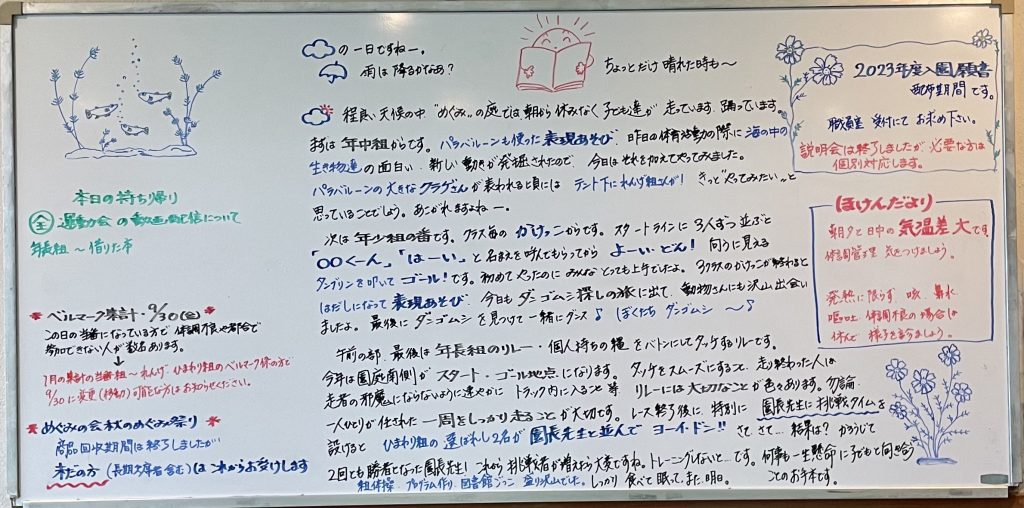 本日の持ち帰り
全 運動会の動画配信について
年長組 〜 借りた本
★ベルマーク集計・9/30(金)
この日の当番になっている方で 体調不良や都合で
参加できない人が数名あります。
↓
9/30に変更(移動)可能な方はお知らせください。
★めぐみの会 秋のめぐみ祭り
商品回収期間は終了しましたが…
未だの方(長期欠席者含む)はこれからお受けします
の一日ですねー。
雨は降るかなあ?
ちょっとだけ 晴れた時も〜
程良い天候の中 "めぐみ"の庭では朝から休みなく子ども達が走っています。踊っています。
まずは 年中組からです。パラバルーンも使った 表現あそび。昨日の体育活動の際に 海の中の
生き物達の面白い 新しい動きが発掘されたので 今日はそれを加えてやってみました。
パラバルーンの大きなクラゲさんが表われる頃には テント下にれんげ組さんが! きっと"やってみたい"と
思っていることでしょう。あこがれますよねー。
次は 年少組の番です。クラス毎の かけっこからです。スタートラインに3人ずつ並ぶと
「〇〇くーん」「はーい」と 名まえを呼んでもらってから よーい・どん! 向うに見える
タンブリンを叩いて ゴール!です。初めてやったのに みんな とっても上手でしたよ。3クラスのかけっこが終わると
はだしになって 表現あそび。今日も ダンゴムシ探しの旅に出て 動物さんにも沢山出会い
ましたよ。最後に ダンゴムシを見つけて 一緒にダンス♪ ぼくたち ダンゴムシ 〜♪
午前の部 最後は 年長組のリレー・個人持ちの縄をバトンにしてタッチするリレーです。
今年は園庭南側が スタート・ゴール地点になります。タッチをスムーズにすること、走り終わった人は
走者の邪魔にならないように速やかに トラック内に入ること 等 リレーには大切なことが色々あります。勿論
一人ひとりが任された 一周をしっかり走ることが 大切です。レース終了後に 特別に 園長先生に挑戦タイムを
設けると ひまわり組の 選ばれし2名が 園長先生と並んで ヨーイ・ドン!! さて さて… 結果は? かろうじて
2回とも勝者となった園長先生! これから挑戦者が増えたら大変ですね。トレーニングしないと…です。何事も一生懸命に子どもと向き合う
組体操 プログラム作り 図書館ごっこ 盛り沢山でした。しっかり 食べて 眠って、また 明日。 このお手本です。
2023年度入園願書
配布期間です。
職員室 受付にて お求め下さい。
説明会は終了しましたが 必要な方は
個別対応します。
ほけんだより
朝夕と日中の 気温差 大です。
体調管理 気をつけましょう。
発熱に限らず 咳 鼻水
嘔吐 体調不良の場合は
休んで 様子をみましょう。